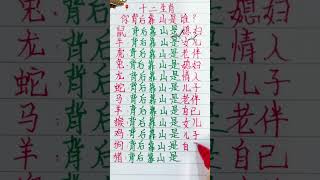 十二生肖
你背后靠山是谁?
鼠:背后靠山是媳妇
牛:背后靠山是女儿
虎:背后靠山是老伴
兔:背后靠山是媳妇
龙:背后靠山是情人
蛇:背后靠山是儿子
马:背后靠山是老伴
羊:背后靠山是自己
猴:背后靠山是女儿
鸡:背后靠山是儿子
狗:背后靠山是自
猪:背后靠山是